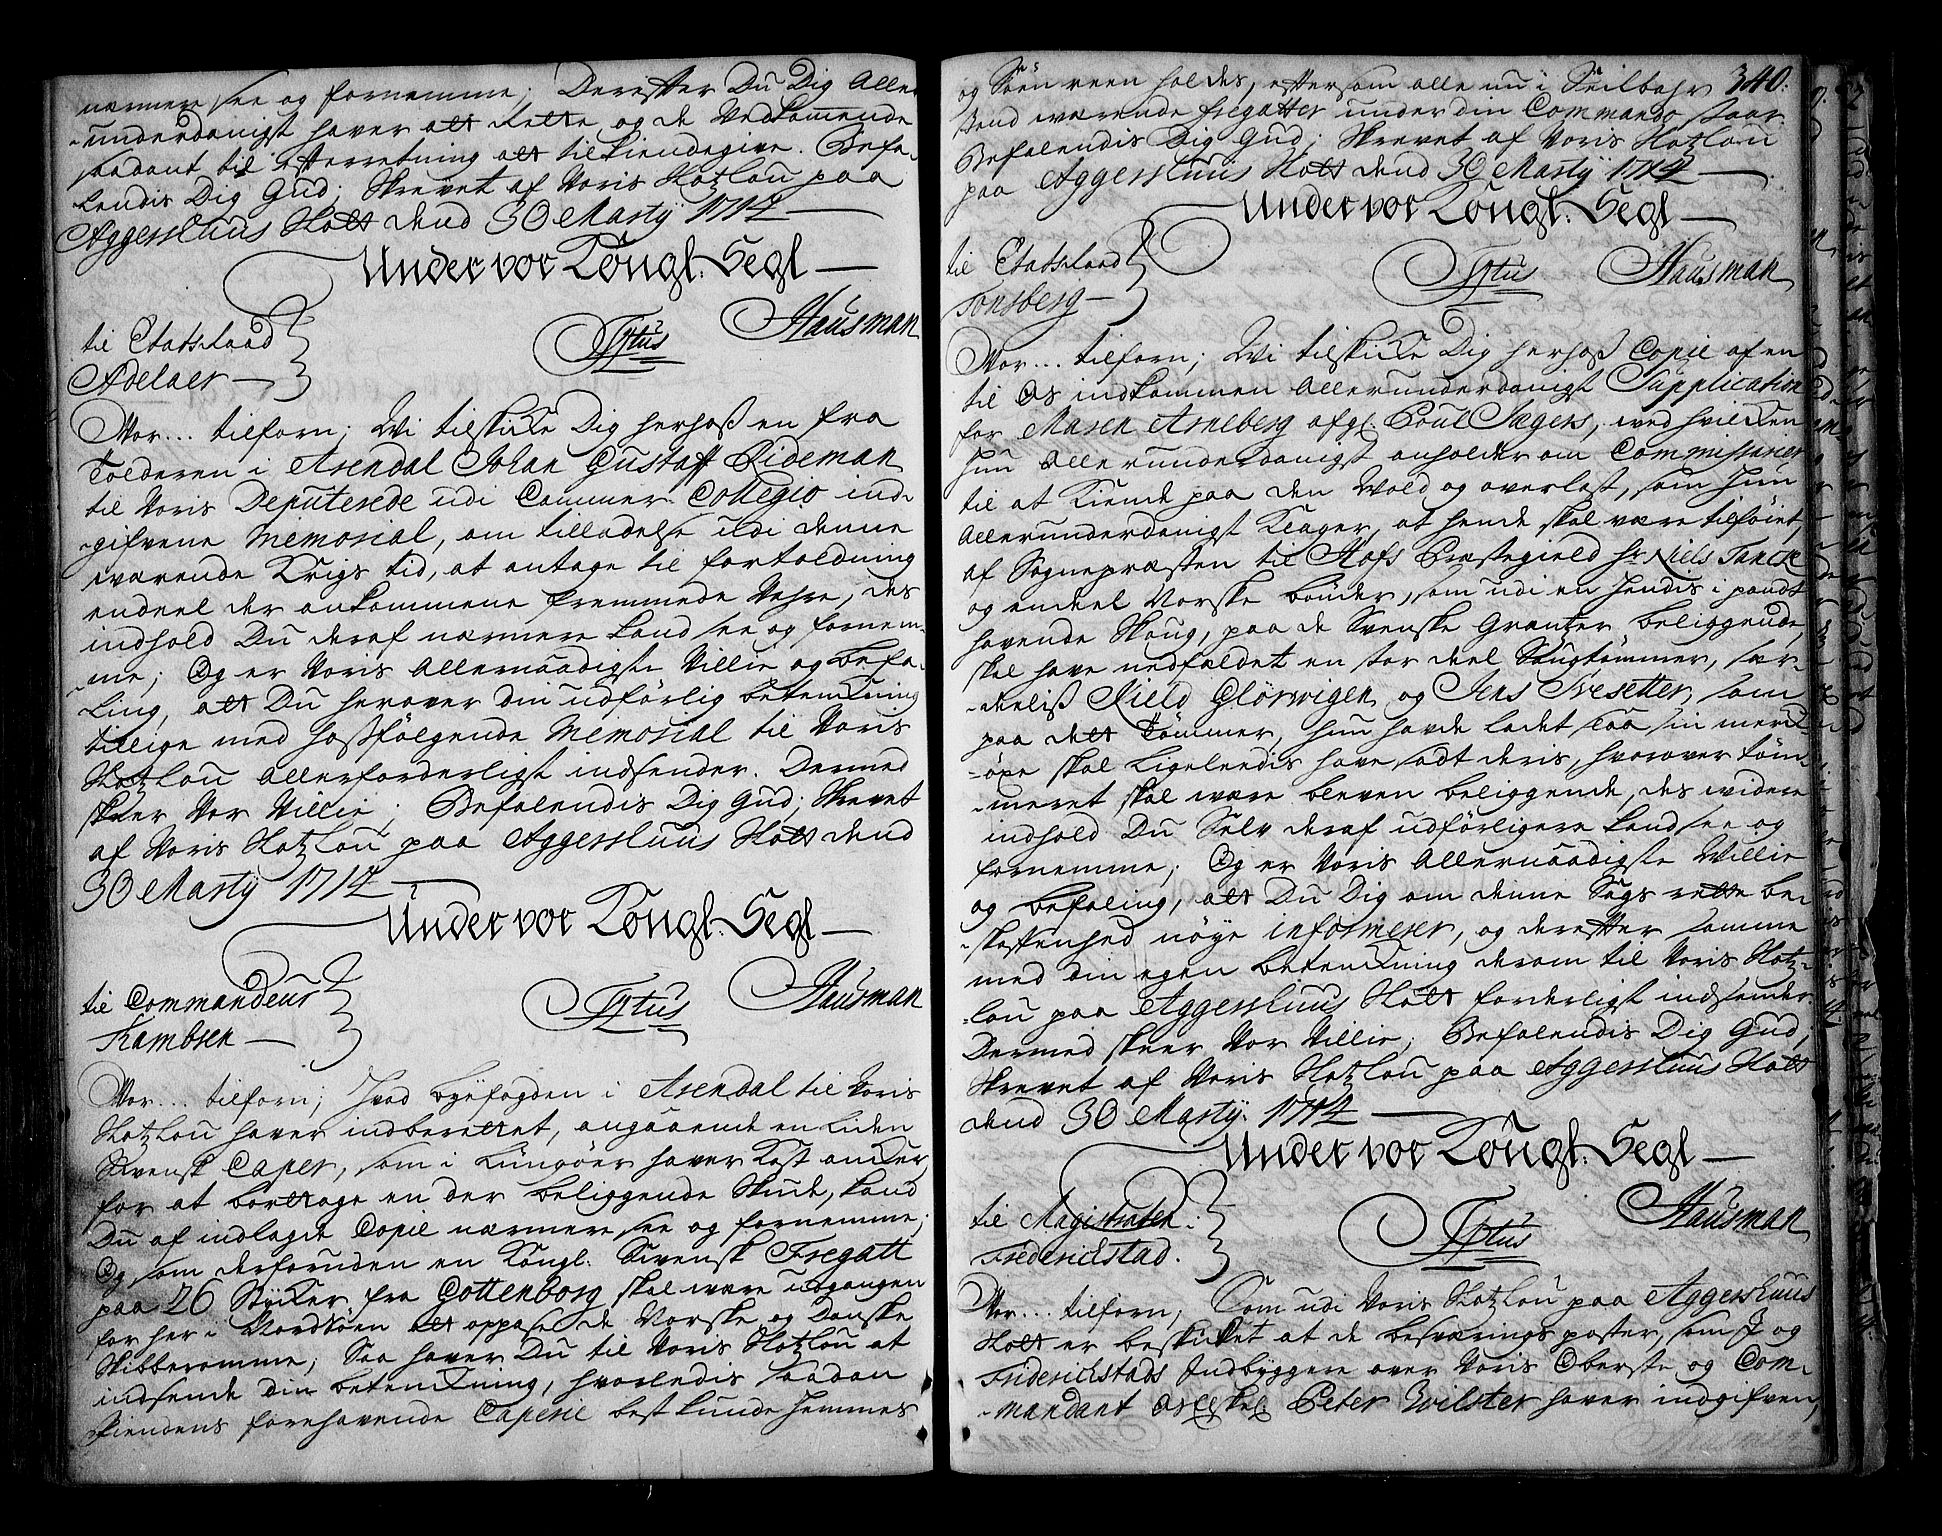 nærmere see og fornemme; Derefter Du Dig Aller
-underdanigst haver att rette og de Vedkommende
saadant til efterretning att tilkiendegive. Befa-
-lendis Dig Gud; Skrevet af Voris Slotzlou paa
Aggershuus Slott dend 30 Martij 1714
Under vor Kongl: Segl
til Etatzraad
Adelaer
Tytus
Hausman
Vor... tilforn; Wi tilskicke Dig herhoß en fra
Tolderen i Arendal Johan Gustaff Rideman
til Voris Deputerede udi Commer: Collegio ind-
-gifvene Memorial, om tilladelse udi denne
værende Krigs tid, at antage til fortoldning
endeel der ankommene fremmede Vahre, des
indhold Du deraf nærmere kand see og fornem-
-me; Og er Voris Allernaadigste Villie og befa-
-ling, att Du herover din udförlig betenckning
tillige med hoßfölgende Memorial til Voris
Slotzlou Allerforderligst indsender. Dermed
skeer Vor Villie; Befalendis Dig Gud; Skrevet
af Voris Slotzlou paa Aggershuus Slott dend
30 Martij 1714
Under vor Kongl: Segl
til Commandeur
Kambsen
Tytus
Hausman
Vor... tilforn; Hvad Byefogden i Arendal til Voris
Slotzlou haver indberettet, angaaende en liden
Svensk Caper, som i Lüngöer haver kast ancker,
for at borttage en der beliggende Skude, kand
Du af indlagde Copie nærmere see og fornemme;
Og som derforuden en Kongl: Svensk Fregatt
paa 26 Stycker fra Gottenborg skal være udgangen
for her i Nordsöen att oppasse de Norske og Danske
Skibberomme; Saa haver Du til Voris Slotzlou at
indsende din betenckning, hvorledis saadan
Fiendens forehavende Caperie best kunde hemmes
340.
og Söen reen holdes, eftersom alle nu i Seilbahr
Stand værende fregatter under din Commando staar.
Befalendis Dig Gud; Skrevet af Voris Slotzlou
paa Aggershuus Slott dend 30 Martij 1714
Under vor Kongl: Segl
til Etatzraad
Tonsberg
Tytus
Hausman
Vor... tilforn; Wi tilskicke Dig herhoß Copie af en
til Os indkommen Allerunderdanigst Supplication
for Maren Arneberg afgl. Poul Jagers, ved hvilcken
Hun Allerunderdanigst anholder om Commissarier
til at kiende paa den Wold og overlast, som Hun
Allerunderdanigst klager, at hende skal være tilföiet,
af Sognepræsten til Hofs Præstegield Hr Niels Tanck
og endeel Norske bönder, som udi en hendis i pandt
havende Skoug, paa de Svenske Grantzer beliggende,
skal have nedfældet en stor deel Saugtömmer, sær-
-deeliß Kield Glörvigen og Jens Tresetter, som
paa dett Tömmer, hun havde ladet slaa sin merck-
-öxe skal ligeleedis have satt deris, hvorover Töm-
-meret skal være bleven beliggende, des videre
indhold Du Selv deraf udförligere kand see og
fornemme; Og er Voris Allernaadigste Willie
og befaling, att Du Dig om denne Sags rette be-
-skaffenhed nöye informerer, og derefter samme
med din egen betenckning derom til Voris Slotz-
-lou paa Aggershuus Slott forderligst indsender.
Dermed skeer Vor Villie; Befalendis Dig Gud;
Skrevet af Voris Slotzlou paa Aggershuus Slott
dend 30 Martij: 1714
Under vor Kongl: Segl
til Magistraten i
Friderichstad.
Tytus
Hausman
Vor... tilforn; Som udi Voris Slotzlou paa Aggershuus
Slott er beskicket at de besværings poster, som J og
Friderichstads Indbyggere over Voris Oberste og Com-
-mandant Peter Wilster haver indgifven,